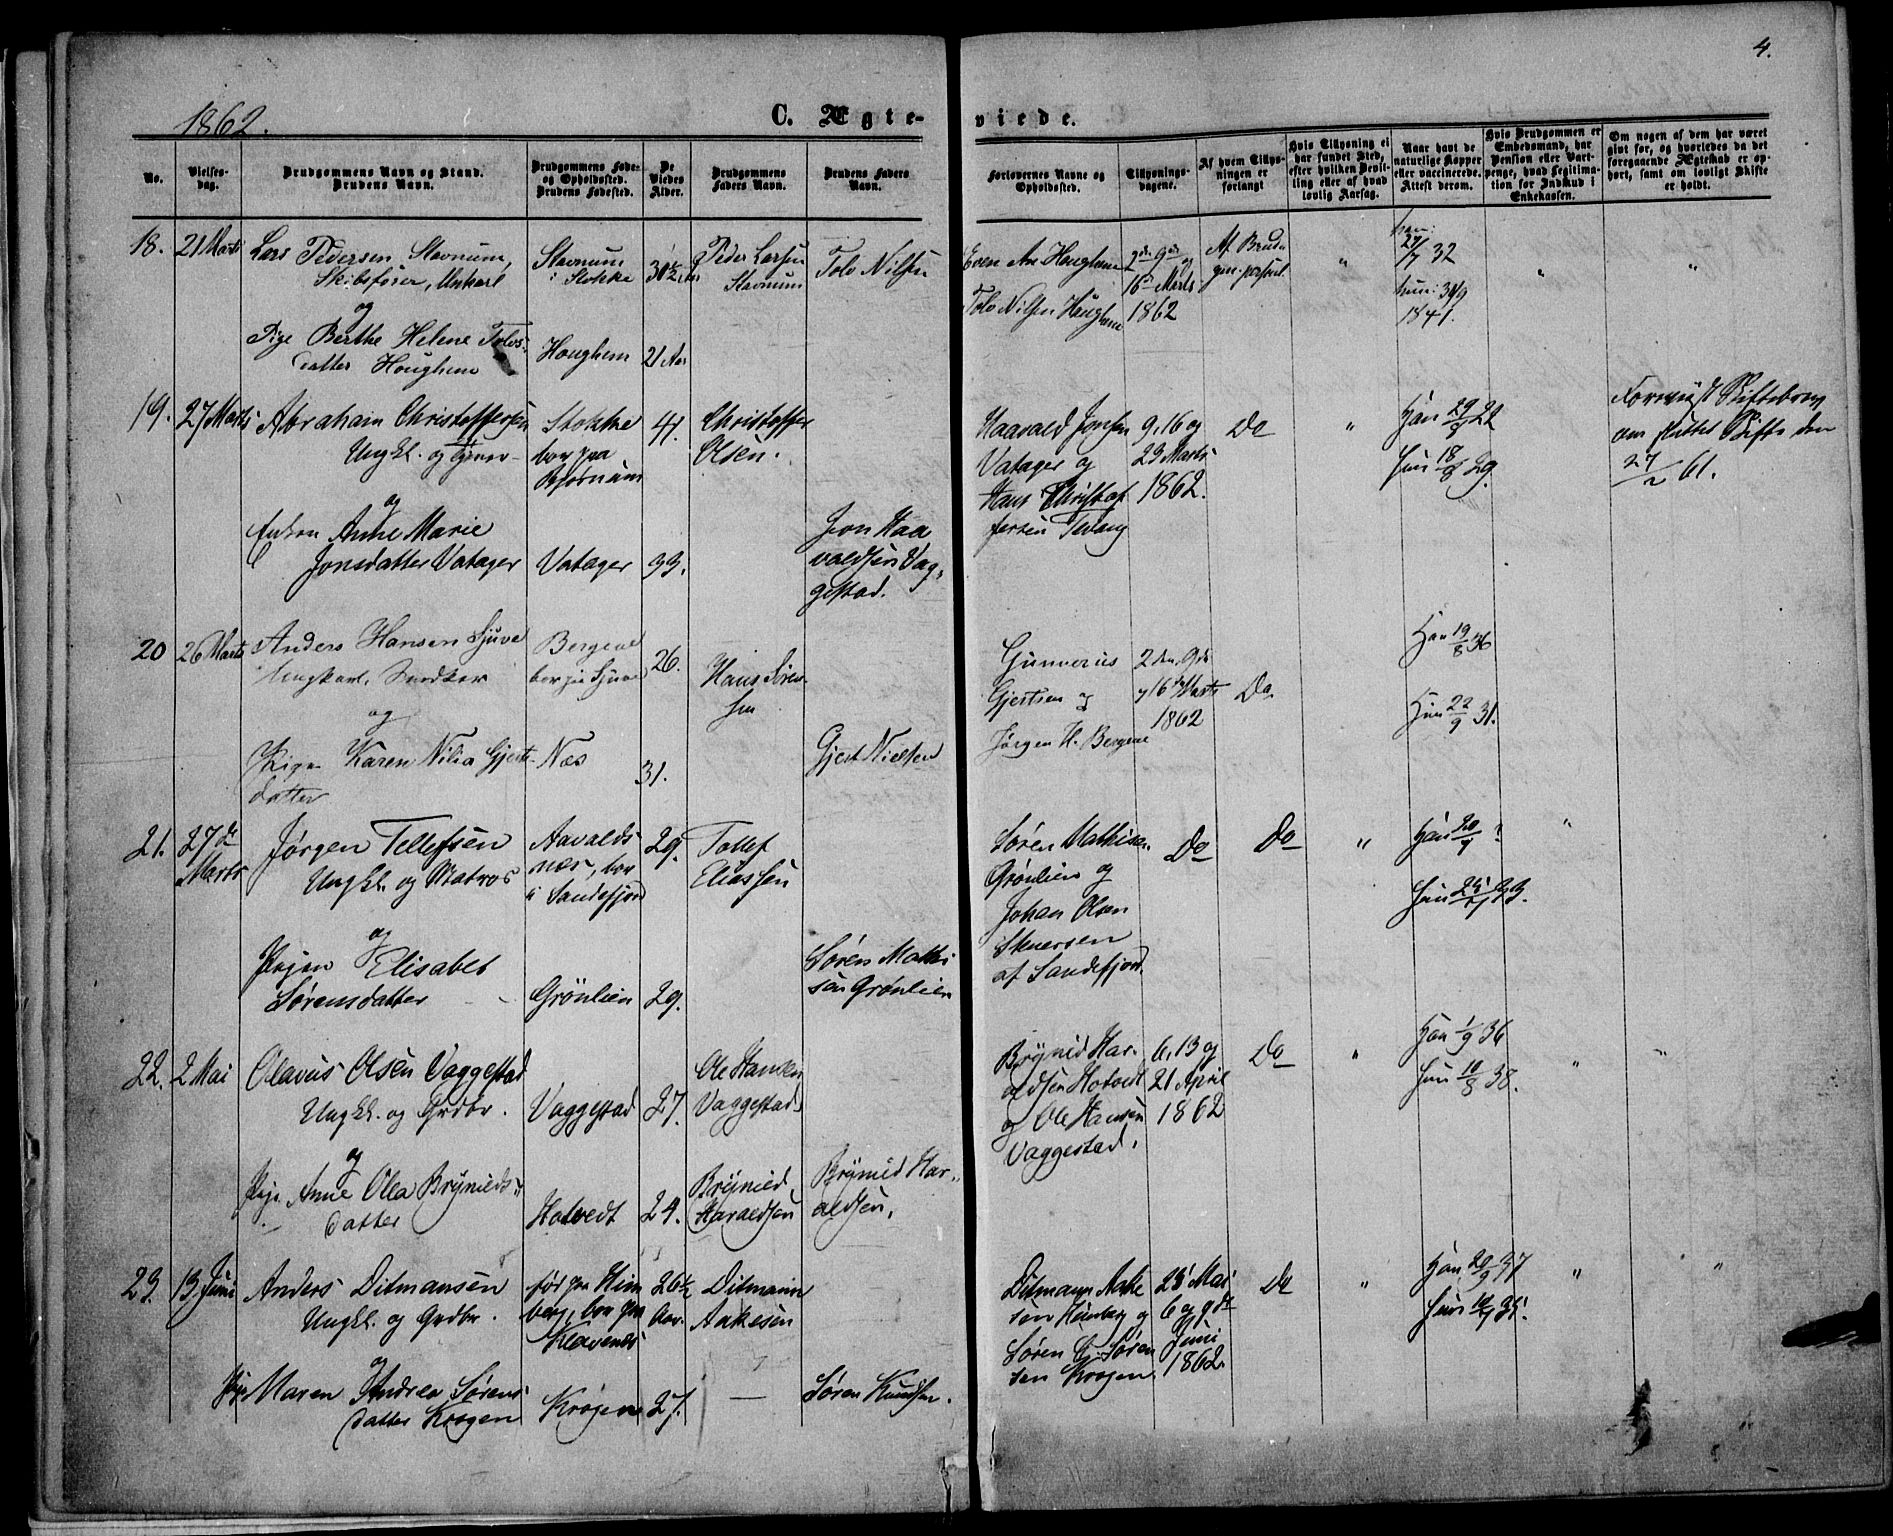 4.
1862.
C. Ægte-
viede.
No.
Vielses-
dag.
Brudgommens Navn og Stand.
Brudens Navn.
Brudgommens Føde-
og Opholdssted.
Brudens Fødested.
De
Viedes
Alder.
Brudgommens
Faders Navn.
Brudens Faders
Navn.
Forlovernes Navne og
Opholdssted.
Tillysnings-
dagene.
Af hvem Tillys-
ningen er
forlangt
Hvis Tillysning ei
har fundet Sted,
efter hvilken Bevil-
ling eller af hvad
lovlig Aarsag.
Naar havt de
naturlige Kopper
eller vaccinerede.
Attest derom.
Hvis Brudgommen er
Embedsmand, har
Pension eller Vart-
penge, hvad Legitima-
tion for Indskud i
Enkekassen.
Om nogen af dem har været
givt før, og hvorledes da det
foregaaende Ægteskab er op-
hørt, samt om lovligt Skifte
er holdt.
18.
21 Marts
Lars Pedersen Stavnum,
Skibsfører, Unkarl
og
Pige Berthe Helene Tolvs-
datter Houghem
Stavnum
i Stokke
Houghem
30½ Aar
21 Aar
Peder Larsen
Stavnum
Tolv Nilsen
Even Houghem
Tolv Nilsen Houghem
2den 9de og
16de Marts
1862
Af Brud-
gom. personl.
"
han:
27/7 32
hun: 30/9
1841.
"
"
19.
27 Marts
Abraham Christoffersen
Ungkl. og
og
Enken Anne Marie
Jonsdatter Vatager
Stokke
bor paa
Bjørnum
Vatager
41.
33.
Christoffer
Olsen.
Jon Haa
valdsen Vag-
gestad.
Haavald Jonsen
Vatager og
Hans Christof
fersen
9, 16 og
23 Marts
1862.
Do
"
Han 29/9 22
Hun 18/8 29.
Forevist Skiftebrev
om sluttet Skifte den
27/2 61.
20
26 Marts
Anders Hansen Sjuve
Ungkarl, Snedker
og
Pigen Karen Nilia Gjerts-
datter
Bergene
bor paa Sjuve
Næs
26.
31.
Hans Søren-
sen
Gjert Nielsen
Gunnerius
Gjertsen og
Jørgen H. Bergene
2den, 9de
og 16de Marts
1862
Do.
Han 19/8 36
Hun 22/9 31.
21.
27de
Marts
Jørgen Tellefsen
Ungkl. og Matros
og
Pigen Elisabet
Sørensdatter
Aavalds
næs, bor
i Sandefjord
Grönlien
29.
29.
Tollef
Eliassen
Sören Mathi
sen Grönlien
Sören Mathisen
Grönlien og
Johan Olsen
Stenersen
af Sandefjord.
Do
Do
"
Han 20/9 ?
Hun 33.
"
22.
2 Mai
Olavus Olsen Vaggestad
Ungkl. og Grdbr.
og
Pige Anne Olea Brynilds-
datter
Vaggestad
Hotvedt
27.
24.
Ole Hansen
Vaggestad
Brynild
Haraldsen
Brynild Har-
aldsen.
Brynild Har-
aldsen Hotvedt
og Ole Hansen
Vaggestad.
6, 13 og
21 April
1862
Do
"
Han 1/9 36
Hun 10/8 38.
"
"
23.
13 Juni
Anders Ditmansen
Ungkl. og Grdbr.
og
Pige Maren Andrea Sörens
datter Krogen
fød paa Him
berg, bor paa
Klavenes
Krogene
26½
Aar.
27.
Ditmann
Aakesen
—
Sören Knudsen.
Ditmann Aake
sen Himberg og
Sören Sören
sen Krogen
25 Mai
6 og 9de
Juni
1862.
Do
"
Han 20/9 37
Hun 10/9 35.
"
"